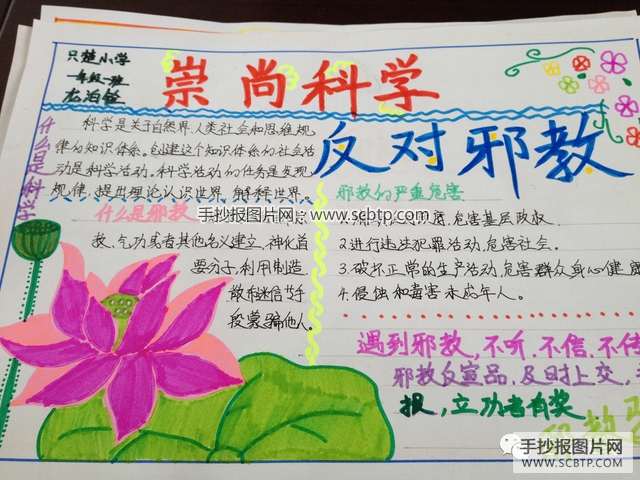 只楚小学
一年级一班
崇尚科学
反对邪教
什么是科学
科学是关于自然界、人类社会和思维规
律的知识体系。创建这个知识体系的社会活
动是科学活动。科学活动的任务是发现
规律,提出理论认识世界、解释世界。
什么是邪教
教、气功或者其他名义建立,神化首
要分子,利用制造、
散布迷信等手
段蒙骗他人。
邪教的严重危害
危害基层政权
2.进行违法犯罪活动,危害社会。
3.破坏正常的生产活动,危害群众身心健
4.侵蚀和毒害未成年人。
遇到邪教,不听、不信、不传
邪教反宣品,及时上交,
报,立功者有奖
邪教
手抄报图片网:www.scbtp.com
手抄报图片网
WWW.SCBTP.COM